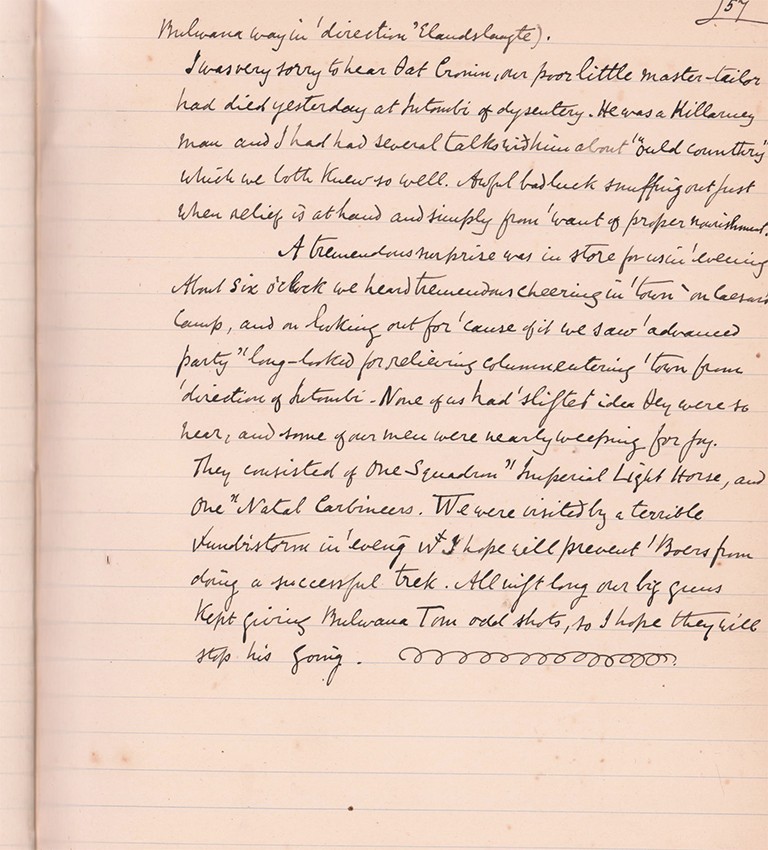 157
Bulwana way in ' direction " Elandslaagte).
I was very sorry to hear Dat Cronin, our poor little master-tailor
had died yesterday at Intombi of dysentery. He was a Killarney
man and I had had several talks wid him about ' "ould counthry"
which we both knew so well. Awful bad luck snuffing out just
when relief is at hand and simply from ' want of proper nourishment.
A tremendous surprise was in store for us in ' evening
About Six o'clock we heard tremendous cheering in ' town & on Caesar's
Camp, and on looking out for ' cause of it we saw ' advanced
party " ' long-looked for relieving column entering ' town from
' direction of Intombi - None of us had ' sliftest idea Dey were so
near, and some of our men were nearly weeping for joy.
They consisted of One Squadron " Imperial Light Horse, and
One " Natal Carbineers. We were visited by a terrible
xunderstorm in ' eveng wh I hope will prevent ' Boers from
doing a successful trek. All nift long our big guns
Kept giving Bulwana Tom odd shots, so I hope they will
stop his going.